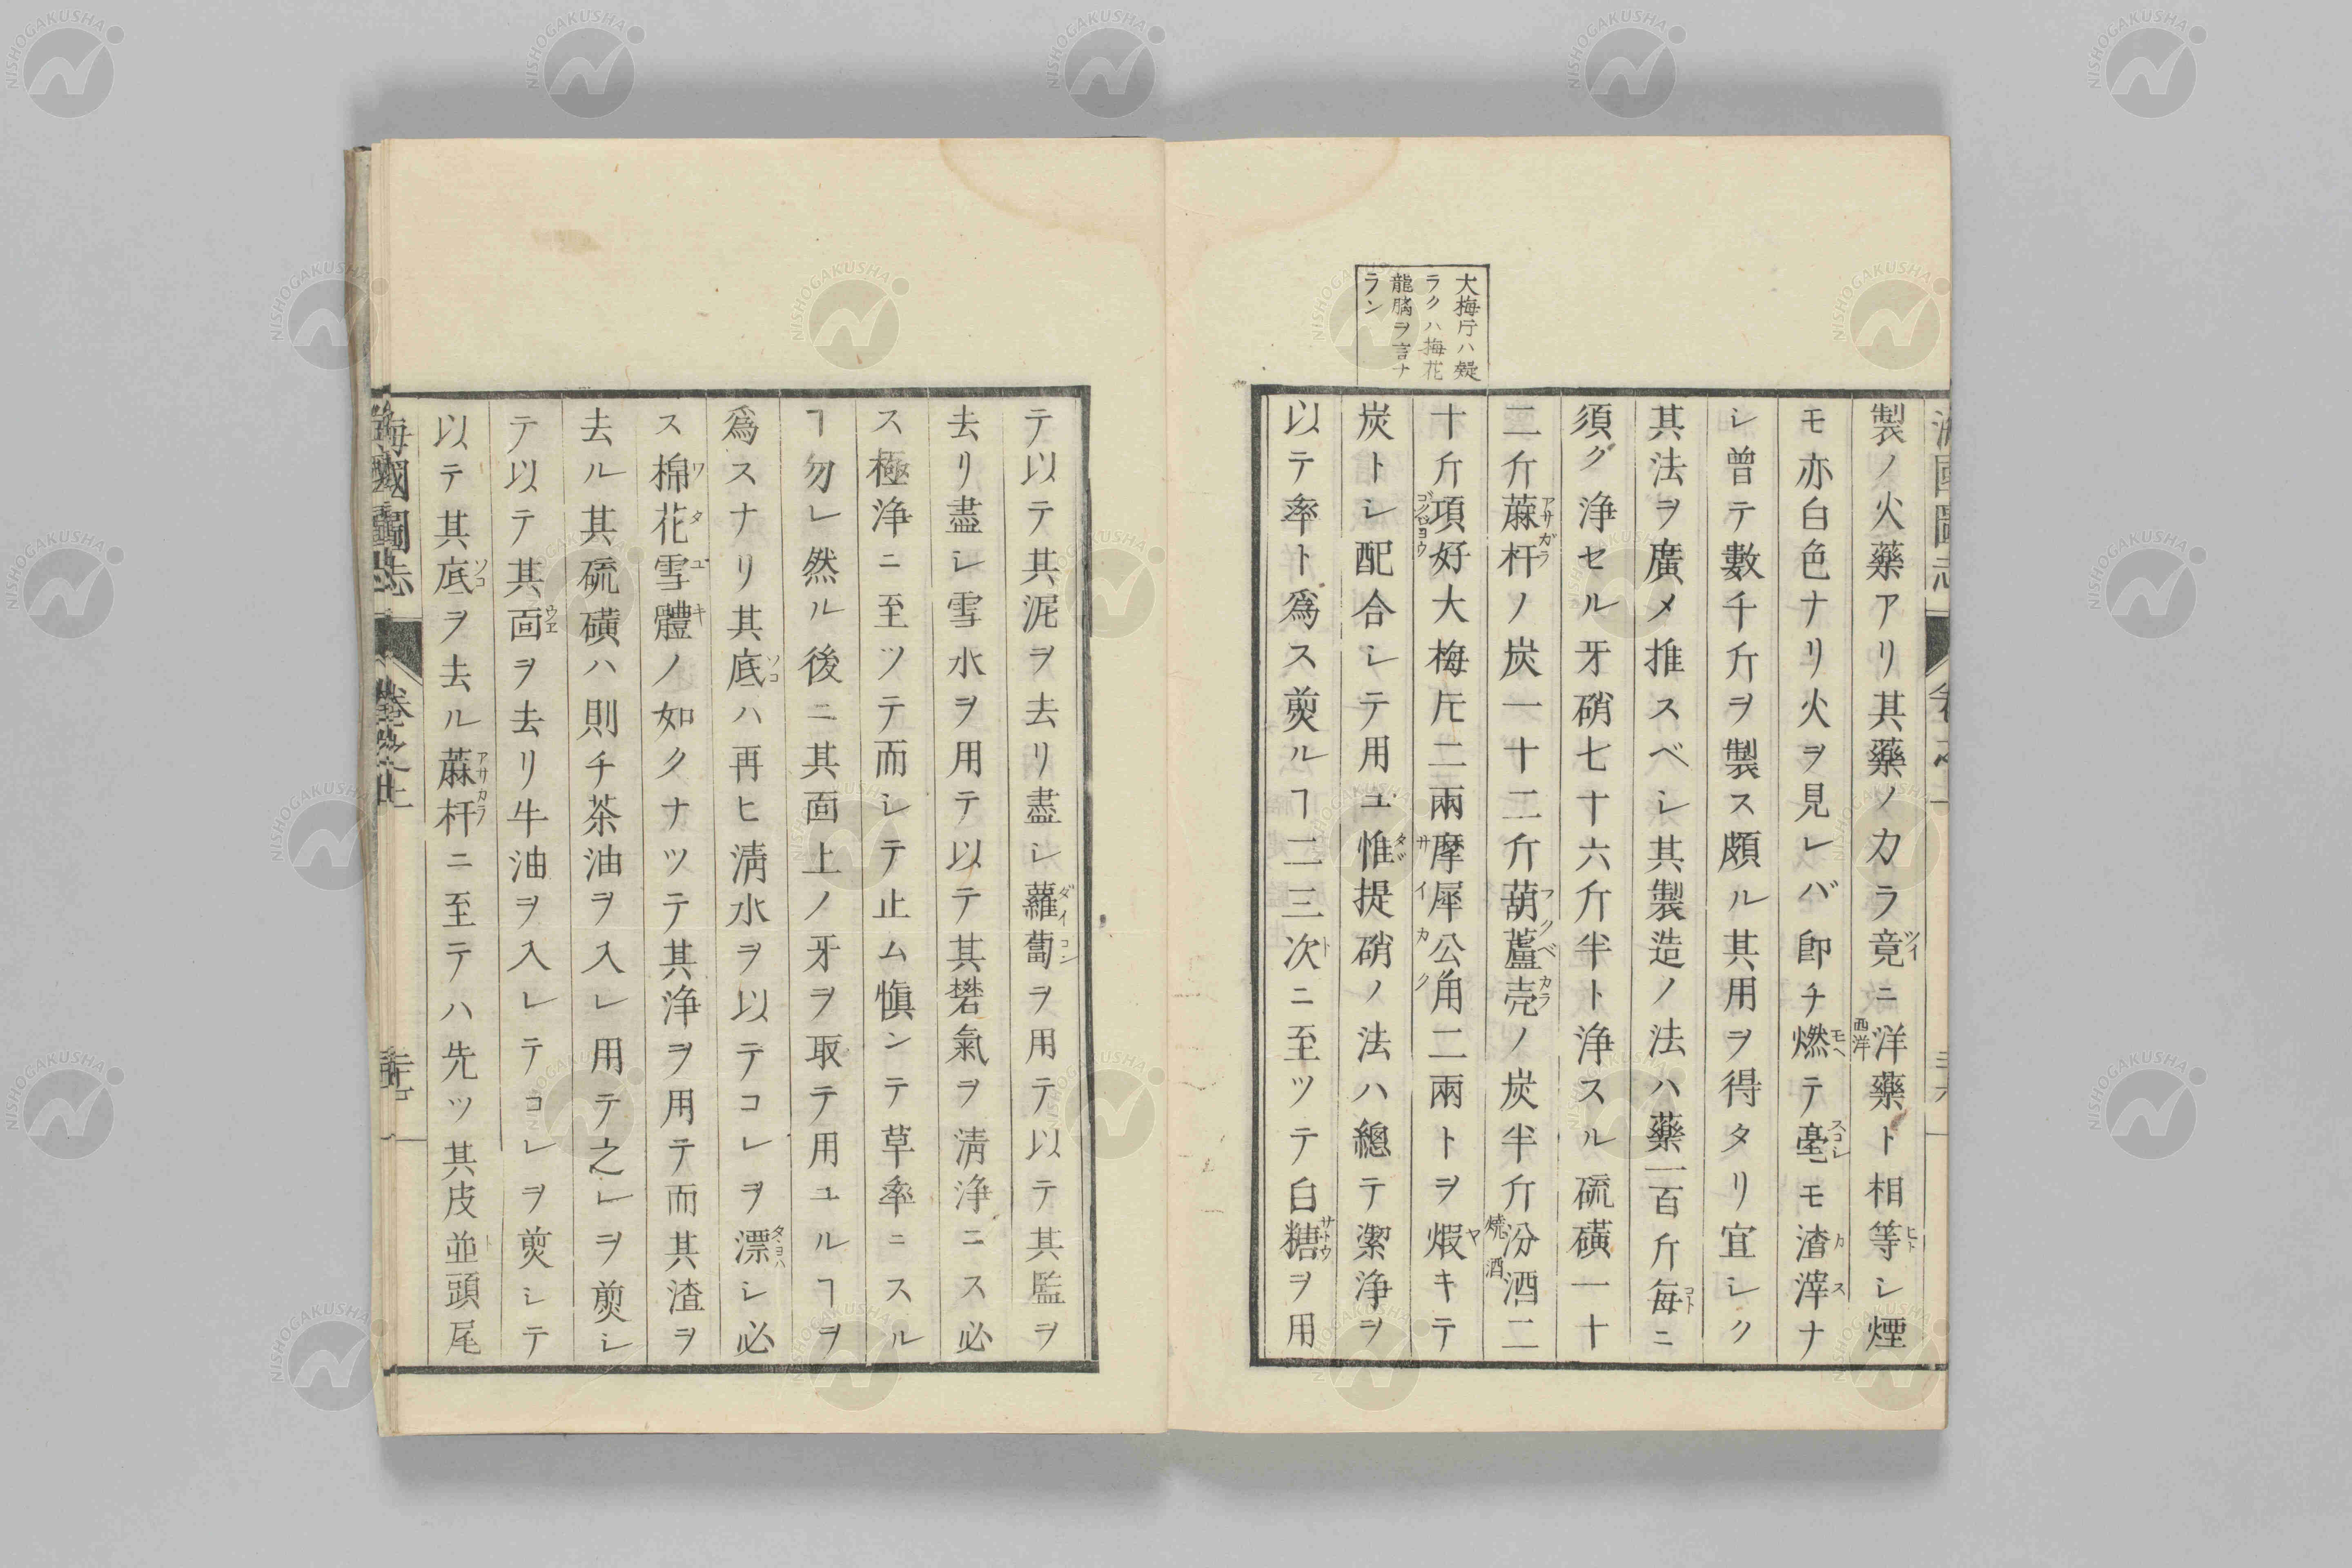 大梅庁ハ疑
ラクハ梅花
龍腦ヲ言ナ
ラン
製ノ火藥アリ其藥ノ力ラ竟ニ洋藥ト相等シ煙
モ亦白色ナリ火ヲ見レバ卽チ燃テ毫モ渣滓ナ
シ曾テ數千斤ヲ製ス頗ル其用ヲ得タリ宜シク
其法ヲ廣メ推スベシ其製造ノ法ハ藥一百斤每ニ
須ク浄セル牙硝七十六斤半ト浄スル硫磺一十
二斤蔴杆ノ炭一十二斤葫蘆壳ノ炭半斤汾酒二
十斤項好大梅片二兩摩犀公角二兩トヲ煆キテ
炭トシ配合シテ用ユ惟提硝ノ法ハ總テ潔浄ヲ
以テ率ト爲ス煎ルヿ二三次ニ至ツテ白糖ヲ用
テ以テ其泥ヲ去リ盡シ蘿蔔ヲ用テ以テ其監ヲ
去リ盡シ雪水ヲ用テ以テ其礬氣ヲ淸浄ニス必
ス極浄ニ至ツテ而シテ止ム愼ンテ草率ニスル
ヿ勿レ然ル後ニ其面上ノ牙ヲ取テ用ユルヿヲ
爲スナリ其底ハ再ヒ淸水ヲ以テコレヲ漂シ必
ス棉花雪體ノ如クナツテ其浄ヲ用テ而其渣ヲ
去ル其硫磺ハ則チ茶油ヲ入レ用テ之レヲ煎シ
テ以テ其面ヲ去リ牛油ヲ入レテコレヲ煎シテ
以テ其底ヲ去ル蔴杆ニ至テハ先ツ其皮並頭尾
海國圖志